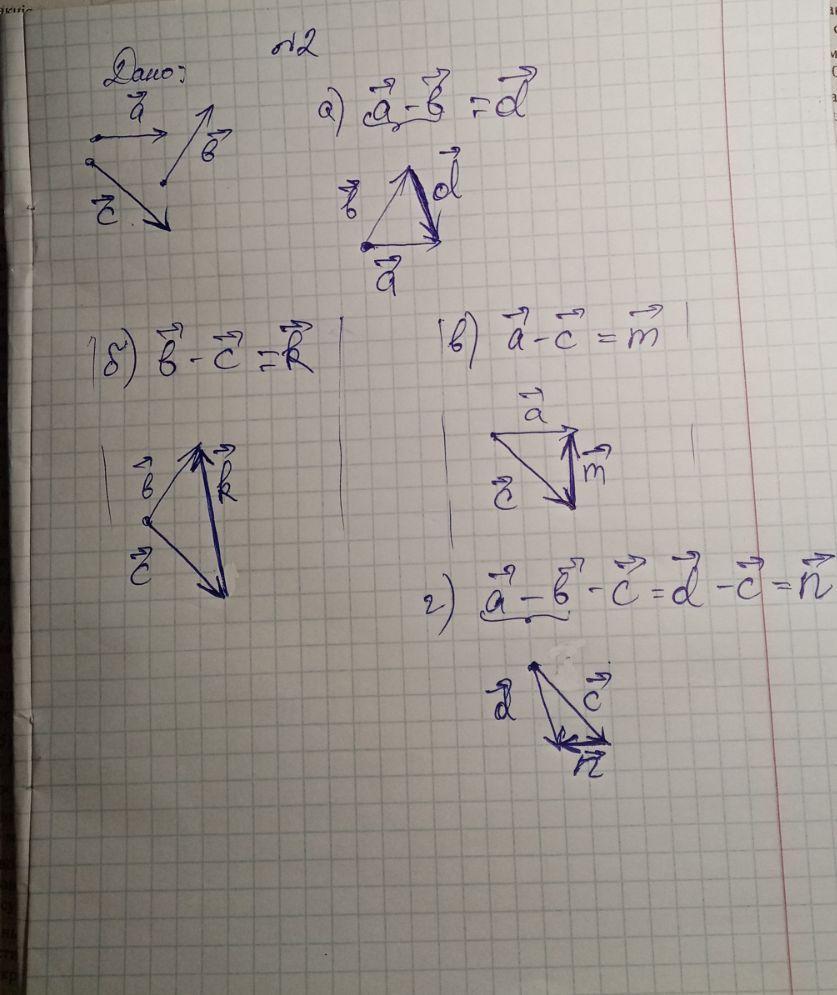 №2
Дано:
a⃗
b⃗
c⃗
а) a⃗ - b⃗ = d⃗
b⃗
d⃗
a⃗
б) b⃗ - c⃗ = k⃗
b⃗
k⃗
c⃗
в) a⃗ - c⃗ = m⃗
a⃗
c⃗
m⃗
г) a⃗ - b⃗ - c⃗ = d⃗ - c⃗ = n⃗
d⃗
c⃗
n⃗